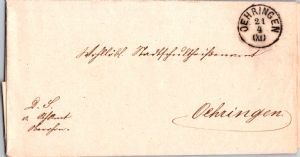 OEHRINGEN
21
4
Wohllöbl. Stadtschultheißenamt
D. S.
Oehringen